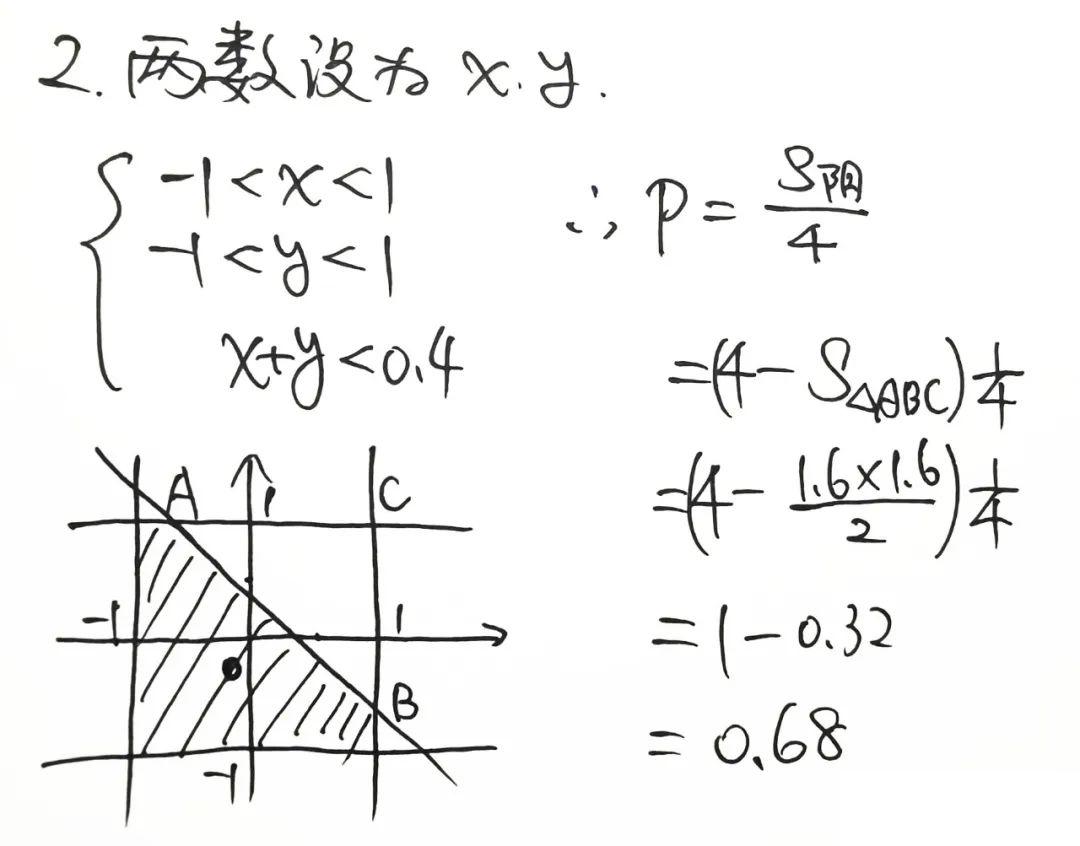 2. 两数设为 x. y.
-1<x<1
-1<y<1
x+y<0.4
∴ P = S阴/4
=(4-S△ABC)1/4
=(4-1.6×1.6/2)1/4
=1-0.32
=0.68
A 1 C
-1 1
B
-1